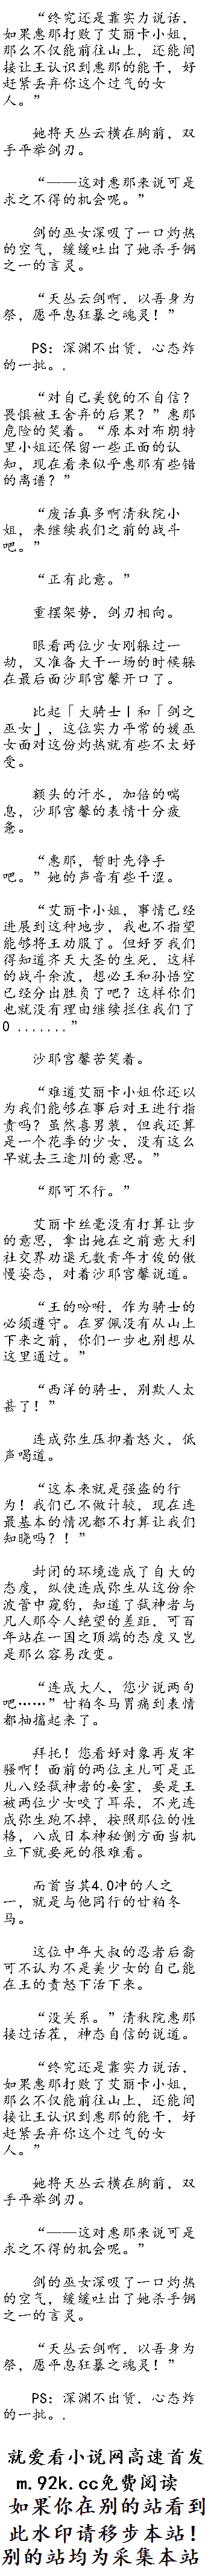 “终究还是靠实力说话，
如果惠那打败了艾丽卡小姐，
那么不仅能前往山上，还能间
接让王认识到惠那的能干，好
赶紧丢弃你这个过气的女
人。”
她将天丛云横在胸前，双
手平举剑刃。
“——这对惠那来说可是
求之不得的机会呢。”
剑的巫女深吸了一口灼热
的空气，缓缓吐出了她杀手锏
之一的言灵。
“天丛云剑啊，以吾身为
祭，愿平息狂暴之魂灵！”
PS：深渊不出货，心态炸
的一批。.
“对自己美貌的不自信？
畏惧被王舍弃的后果？”惠那
危险的笑着。“原本对布朗特
里小姐还保留一些正面的认
知，现在看来似乎惠那有些错
的离谱？”
“废话真多啊清秋院小
姐，来继续我们之前的战斗
吧。”
“正有此意。”
重摆架势，剑刃相向。
眼看两位少女刚躲过一
劫，又准备大干一场的时候躲
在最后面沙耶宫馨开口了。
比起「大骑士」和「剑之
巫女」，这位实力平常的媛巫
女面对这份灼热就有些不太好
受。
额头的汗水，加倍的喘
息，沙耶宫馨的表情十分疲
惫。
“惠那，暂时先停手
吧。”她的声音有些干涩。
“艾丽卡小姐，事情已经
进展到这种地步，我也不指望
能够将王劝服了。但好歹我们
得知道齐天大圣的生死，这样
的战斗余波，想必王和孙悟空
已经分出胜负了吧？这样你们
也就没有理由继续拦住我们了
0 .......”
沙耶宫馨苦笑着。
“难道艾丽卡小姐你还以
为我们能够在事后对王进行指
责吗？虽然喜男装，但我还算
是一个花季的少女，没有这么
早就去三途川的意思。”
“那可不行。”
艾丽卡丝毫没有打算让步
的意思，拿出她在之前意大利
社交界劝退无数青年才俊的傲
慢姿态，对着沙耶宫馨说道。
“王的吩咐，作为骑士的
必须遵守。在罗佩没有从山上
下来之前，你们一步也别想从
这里通过。”
“西洋的骑士，别欺人太
甚了！”
连成弥生压抑着怒火，低
声喝道。
“这本来就是强盗的行
为！我们已不做计较，现在连
最基本的情况都不打算让我们
知晓吗？！”
封闭的环境造成了自大的
态度，纵使连成弥生从这份余
波管中窥豹，知道了弑神者与
凡人那令人绝望的差距，可百
年站在一国之顶端的态度又岂
是那么容易改变。
“连成大人，您少说两句
吧……”甘粕冬马胃痛到表情
都抽搐起来了。
拜托！您看好对象再发牢
骚啊！面前的两位主儿可是正
儿八经弑神者的妾室，要是王
被两位少女咬了耳朵，不光连
成弥生跑不掉，按照那位的性
格，八成日本神秘侧方面当机
立下就要死的很难看。
而首当其4.0冲的人之
一，就是与他同行的甘粕冬
马。
这位中年大叔的忍者后裔
可不认为不是美少女的自己能
在王的责怒下活下来。
“没关系。”清秋院惠那
接过话茬，神态自信的说道。
“终究还是靠实力说话，
如果惠那打败了艾丽卡小姐，
那么不仅能前往山上，还能间
接让王认识到惠那的能干，好
赶紧丢弃你这个过气的女
人。”
她将天丛云横在胸前，双
手平举剑刃。
“——这对惠那来说可是
求之不得的机会呢。”
剑的巫女深吸了一口灼热
的空气，缓缓吐出了她杀手锏
之一的言灵。
“天丛云剑啊，以吾身为
祭，愿平息狂暴之魂灵！”
PS：深渊不出货，心态炸
的一批。.
就爱看小说网高速首发
m.92k.cc免费阅读
如果你在别的站看到
此水印请移步本站！
别的站均为采集本站